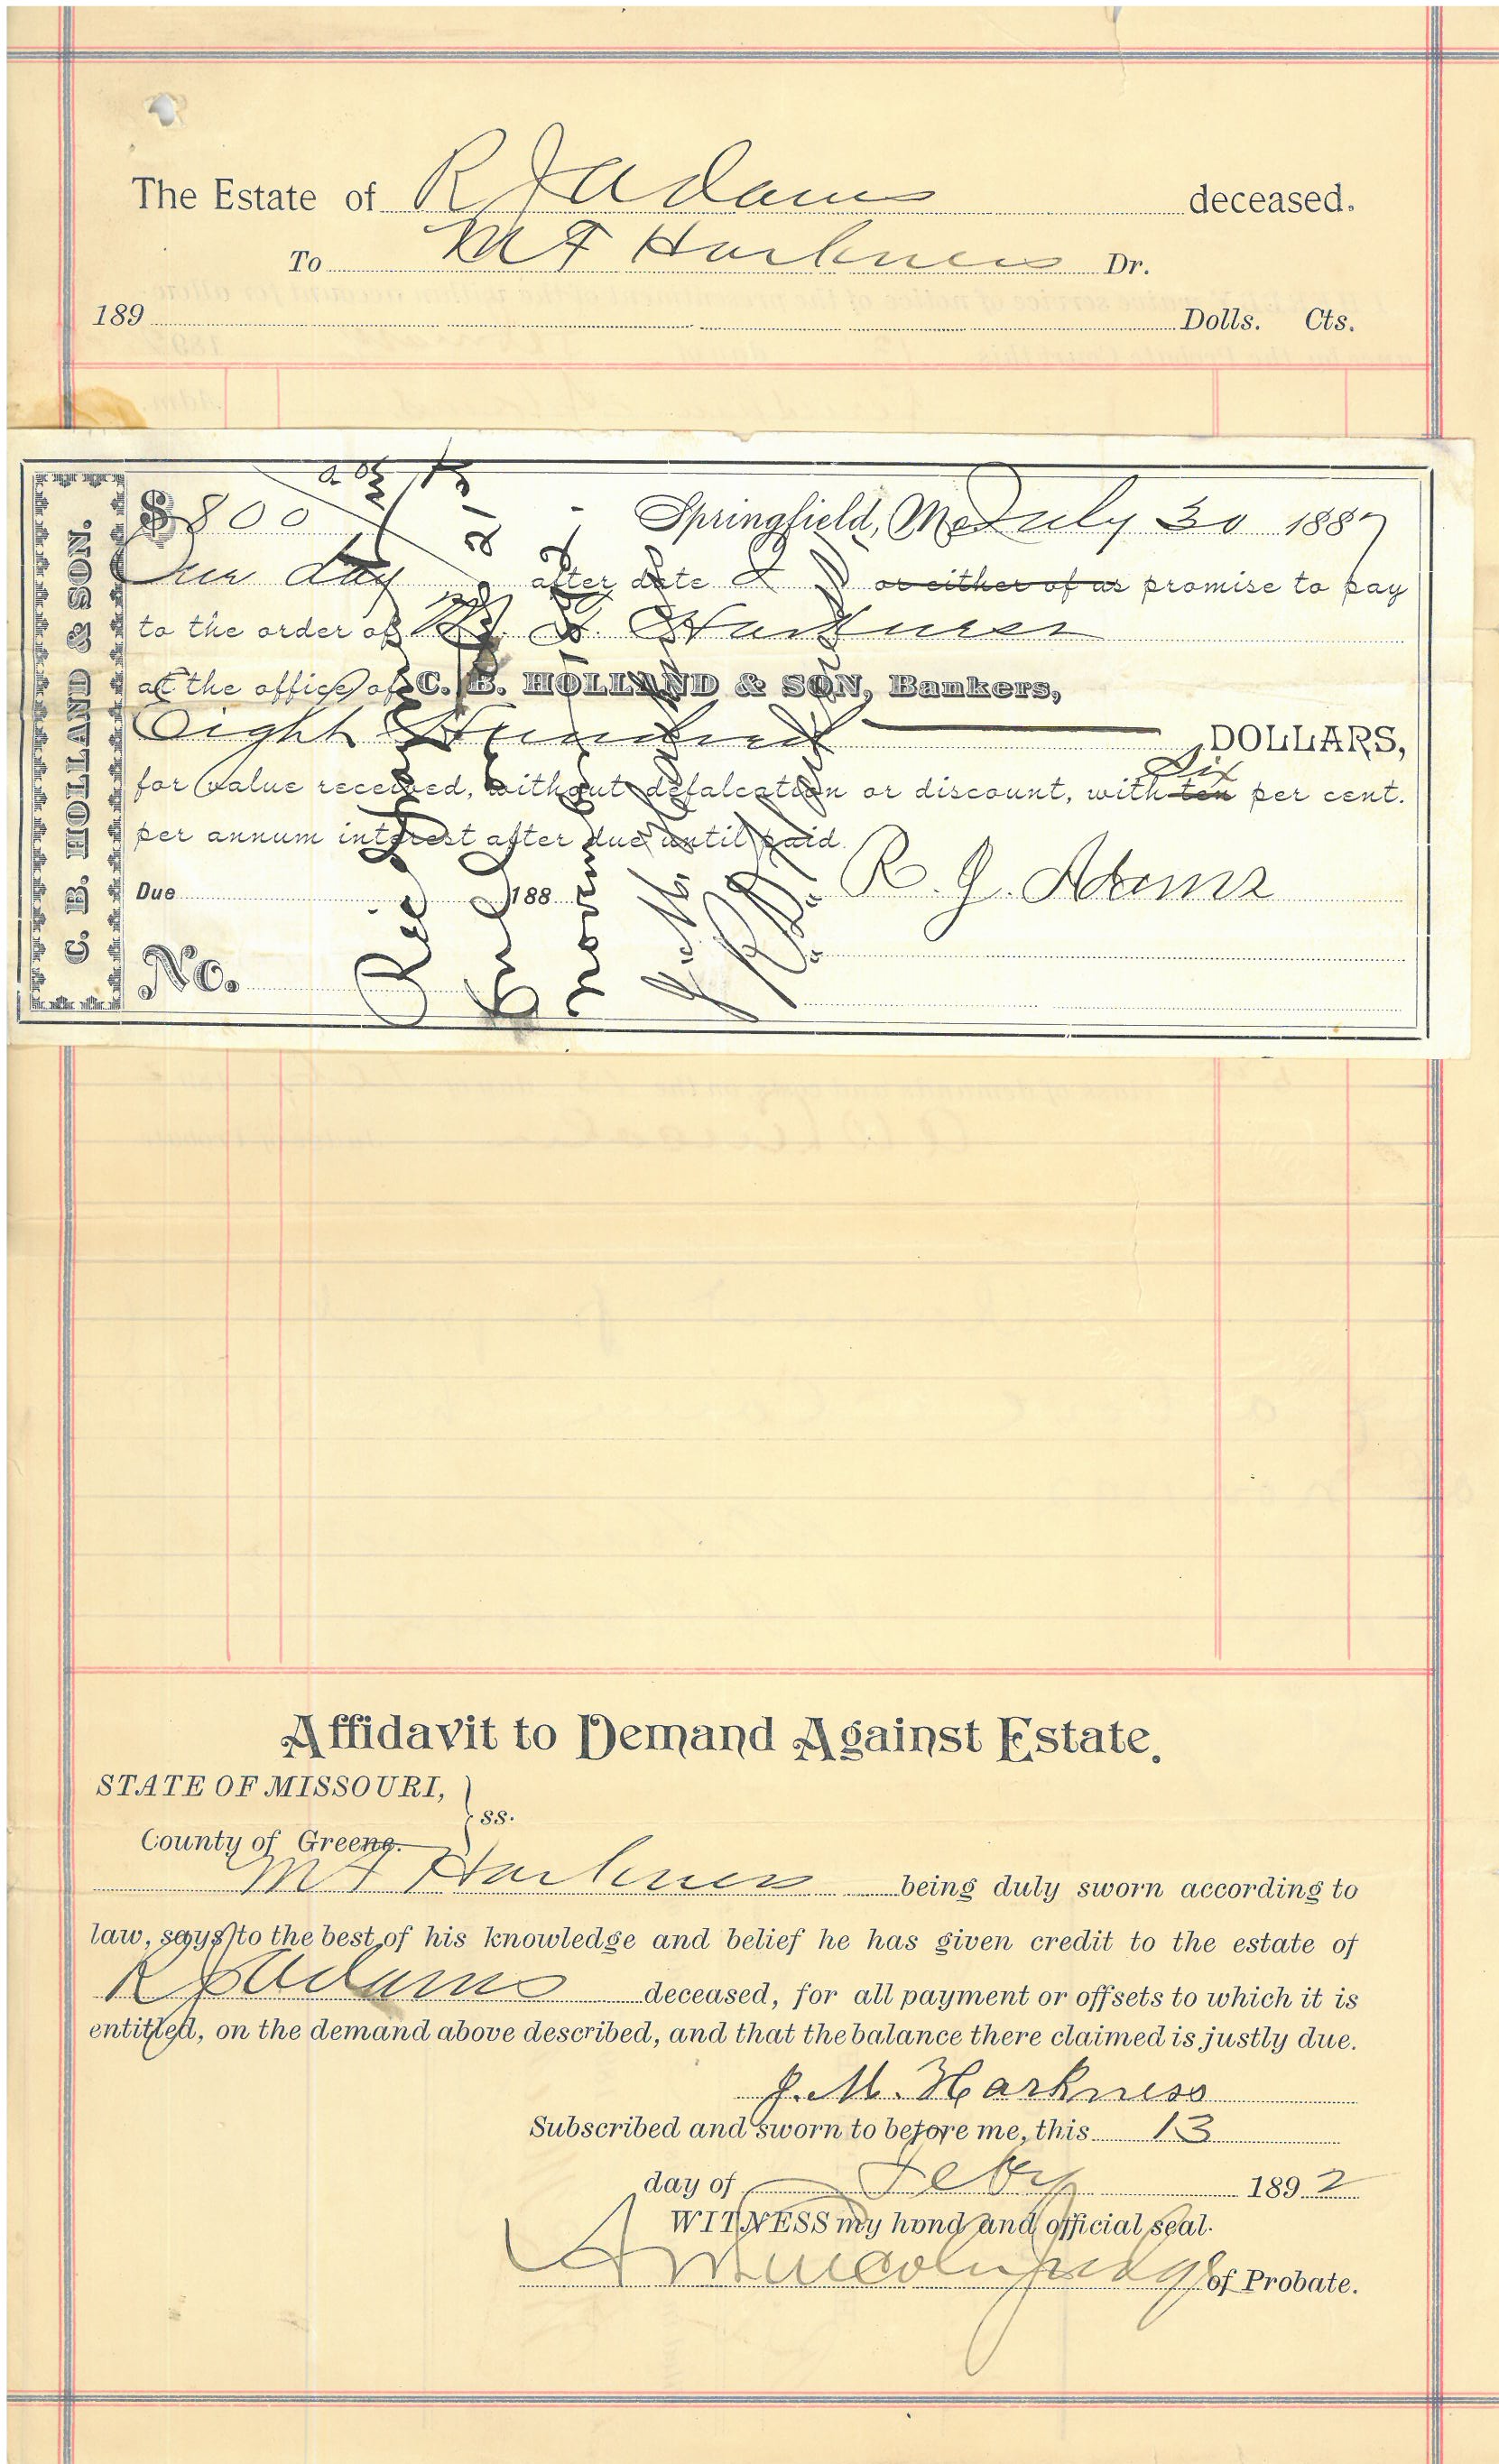 The Estate of R J Adams deceased.
To M F Harkness Dr.
189 Dolls. Cts.
C. B. HOLLAND & SON.
$800 Springfield, Mo July 30 1887
One day after date I or either of us promise to pay
to the order of M. F. Harkness
at the office of C. B. HOLLAND & SON, Bankers,
Eight Hundred DOLLARS,
Six
for value received, without defalcation or discount, with ten per cent.
per annum interest after due until paid.
Due 188 R. J. Adams
No.
Affidavit to Demand Against Estate.
STATE OF MISSOURI,
ss.
County of Greene.
M F Harkness being duly sworn according to
law, says to the best of his knowledge and belief he has given credit to the estate of
R J Adams deceased, for all payment or offsets to which it is
entitled, on the demand above described, and that the balance there claimed is justly due.
J. M. Harkness
Subscribed and sworn to before me, this 13
day of Feby 1892
WITNESS my hand and official seal.
judge of Probate.